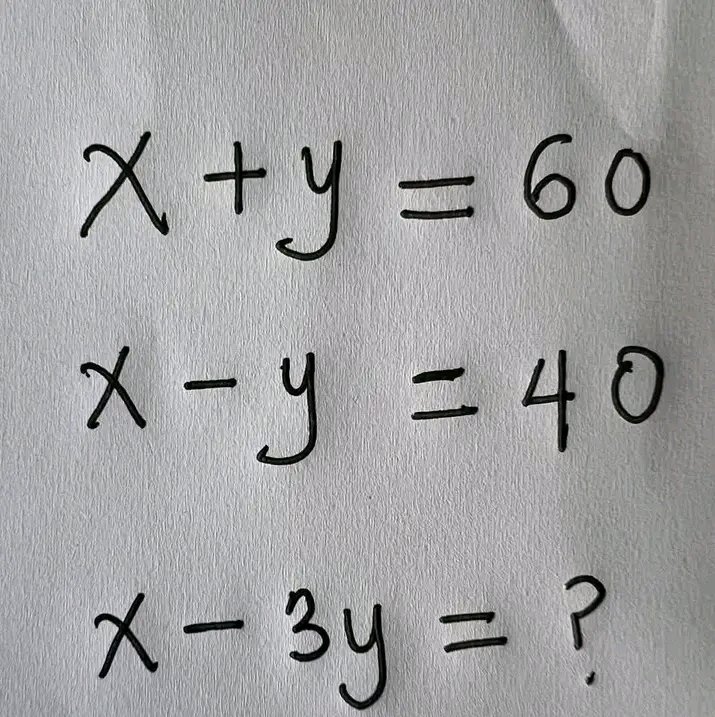 x + y = 60
x - y = 40
x - 3y = ?